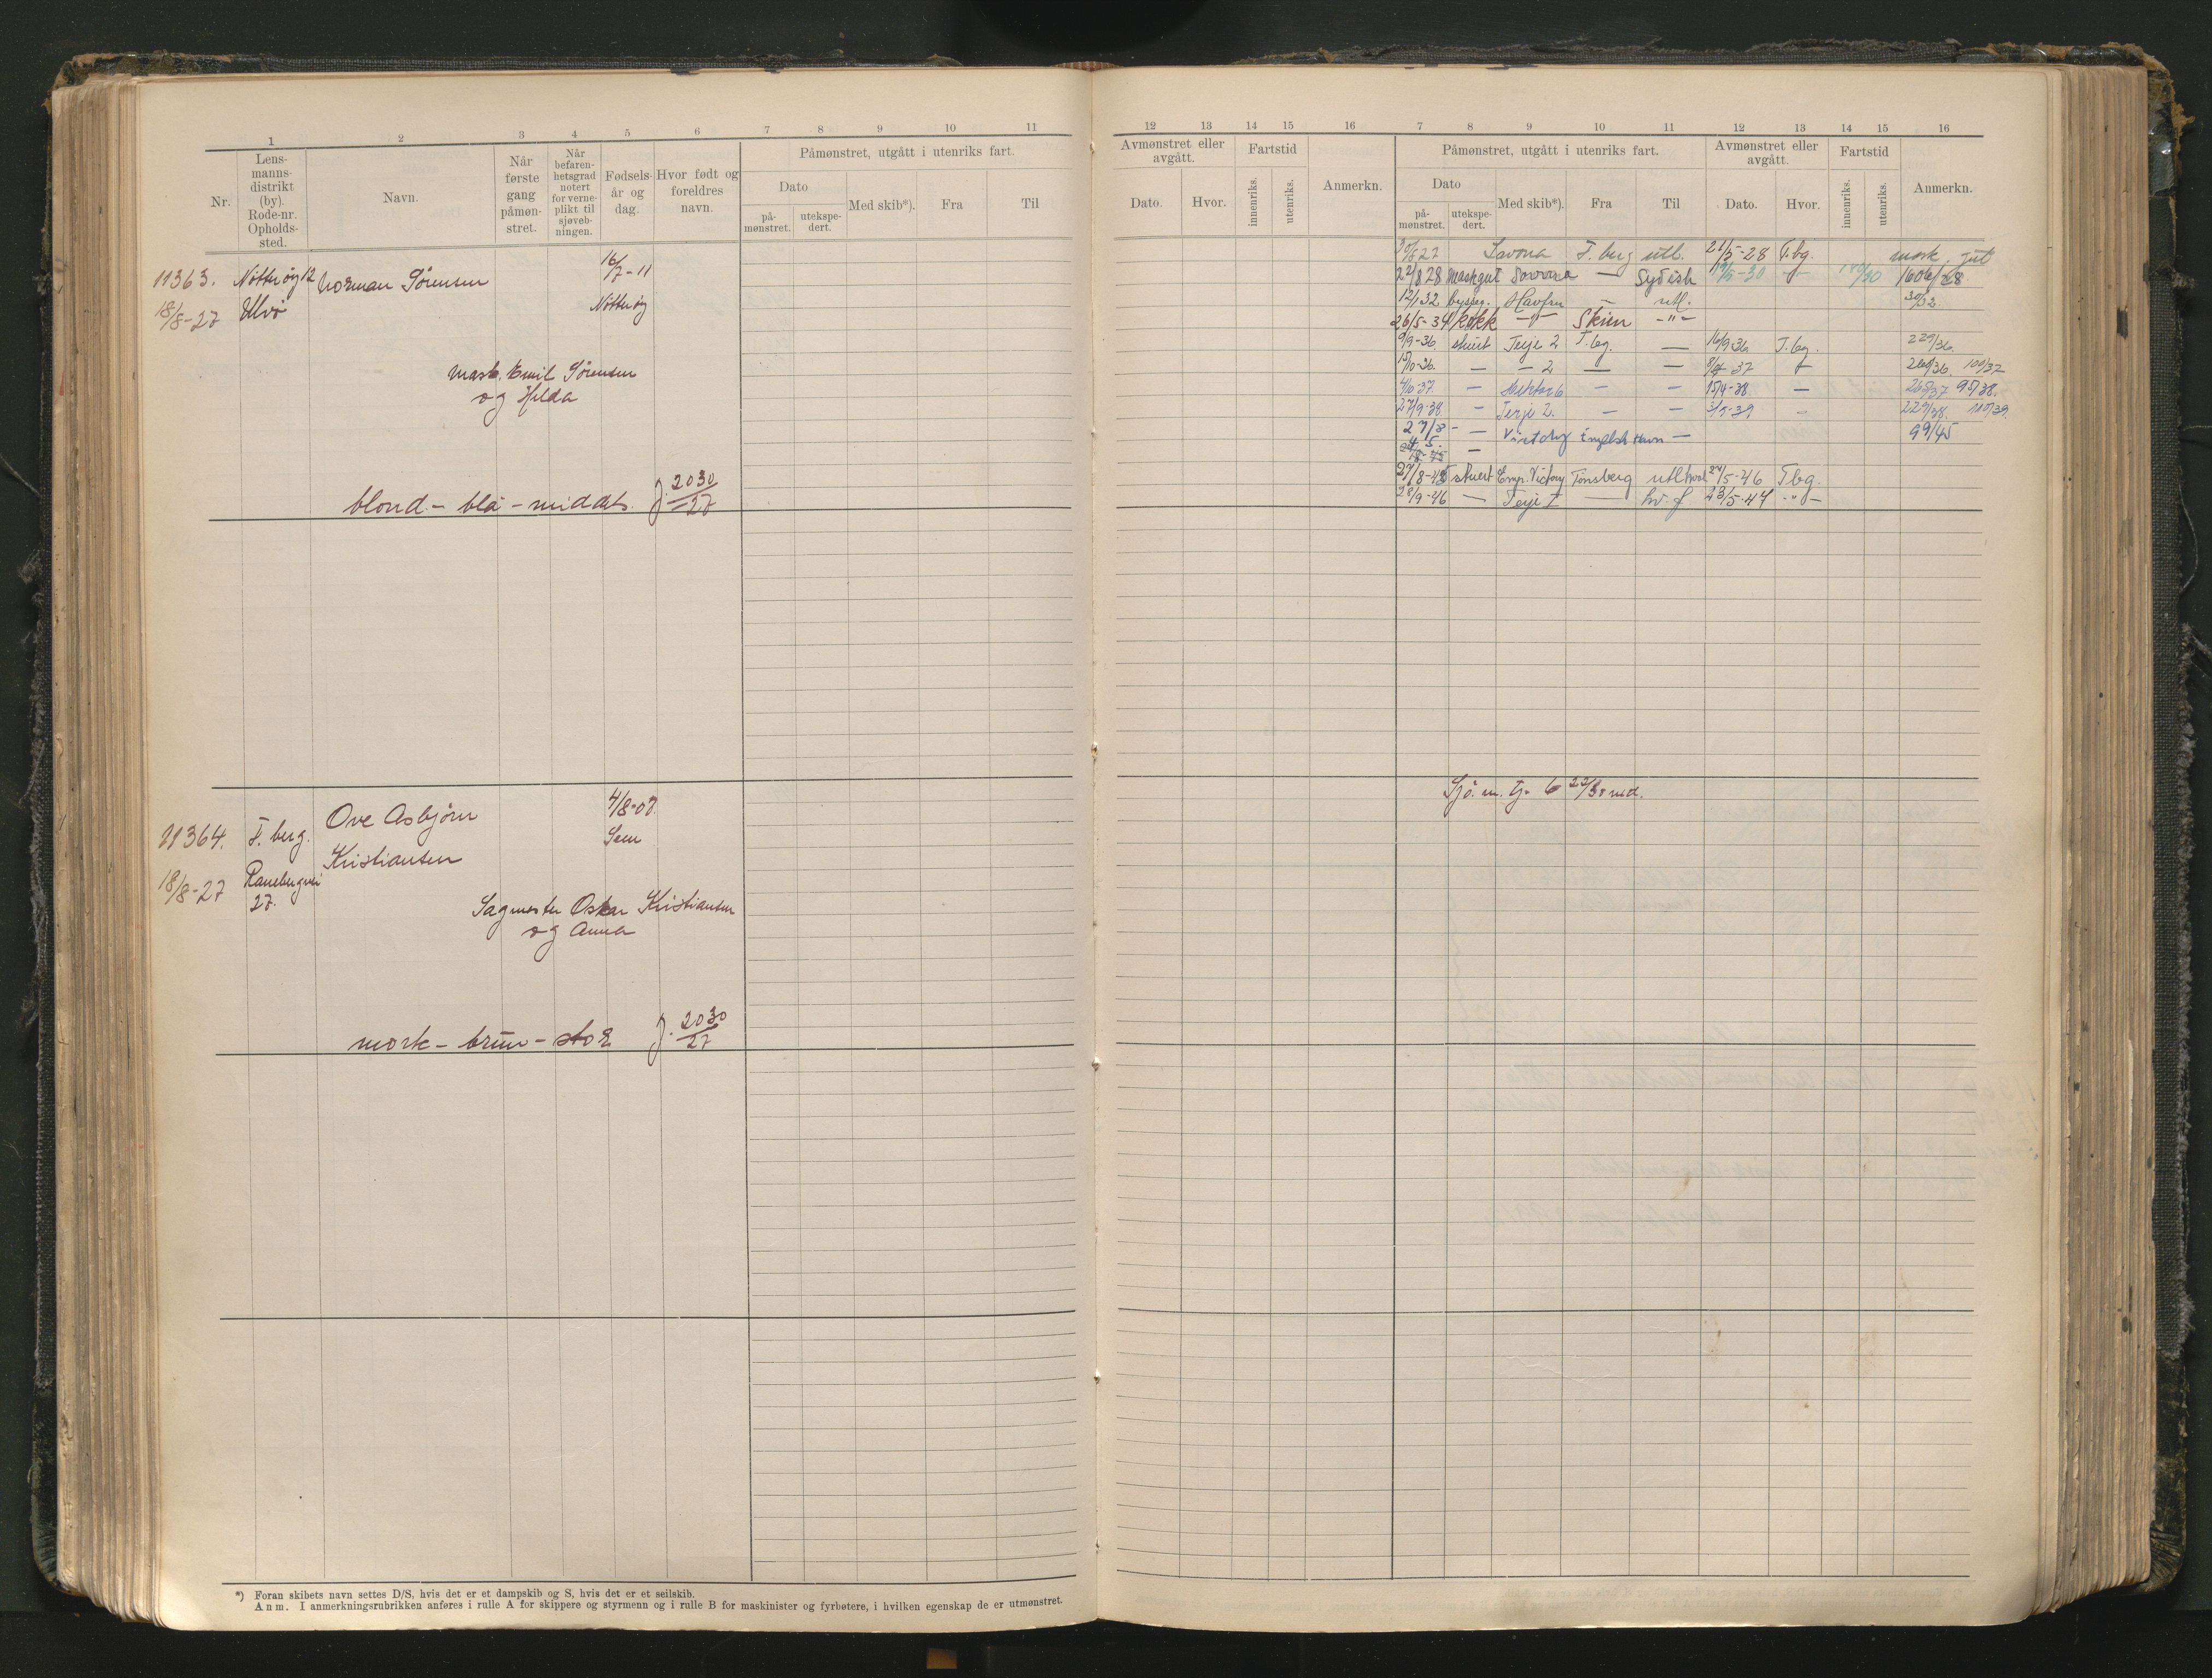 1 2 3 4 5 6 7 8 9 10 11
Nr.
Lens-
manns-
distrikt
(by).
Rode-nr.
Opholds-
sted.
Navn.
Når
første
gang
påmøn-
stret.
Når
befaren-
hetsgrad
notert
for verne-
plikt til
sjøveb-
ningen.
Fødsels-
år og
dag.
Hvor født og
foreldres
navn.
Påmønstret, utgått i utenriks fart.
Dato
på-
mønstret.
utekspe-
dert.
Med skib*).
Fra
Til
11363. Nøtterøy 12 Norman Sørensen 16/7-11
18/8-27 Ulvø Nøtterøy
Mask. Emil Sørensen
og Hilda
blond.- blå - middels. J. 2030/27
11364. T. berg. Ove Asbjørn 4/8-07.
Kristiansen Sem
18/8-27 Ranebergvei
27.
Sagmester Oskar Kristiansen
og Anna
mørk - brun - stor J. 2030/27
*) Foran skibets navn settes D/S, hvis det er et dampskib og S, hvis det er et seilskib.
Anm. I anmerkningsrubrikken anføres i rulle A for skippere og styrmenn og i rulle B for maskinister og fyrbøtere, i hvilken egenskap de er utmønstret.
12 13 14 15 16 7 8 9 10 11 12 13 14 15 16
Avmønstret eller
avgått.
Dato.
Hvor.
Fartstid
innenriks.
utenriks.
Anmerkn.
Påmønstret, utgått i utenriks fart.
Dato
på-
mønstret.
utekspe-
dert.
Med skib*).
Fra
Til
Avmønstret eller
avgått.
Dato.
Hvor.
Fartstid
innenriks.
utenriks.
Anmerkn.
Savona T. berg utl. 21/5-28 T.bg.
22/8 28 Savona — Sydish 1606/28
12/1 32 utl. 30/32.
26/5-34 kokk —"— Skien —"—
9/9-36. stuert Terje 2 T.bg. — 16/9 36 T.bg. 229/36.
15/10-36. — — 2 — — 8/4-37 260/36. 100/37
4/10-37 — — — 15/4-38. — 265/37 95/38.
27/9-38. — Terje 2. — — 3/5-39 — 229/38. 110/39.
27/8- — Victory Engelsk Havn — 99/45
27/8-45 stuert Emp. Victory Tønsberg 27/5-46 Tbg.
28/9-46 — Terje I — hv. f 23/5-47 -"-
Sjö. m. tj. 6 22/30 md.